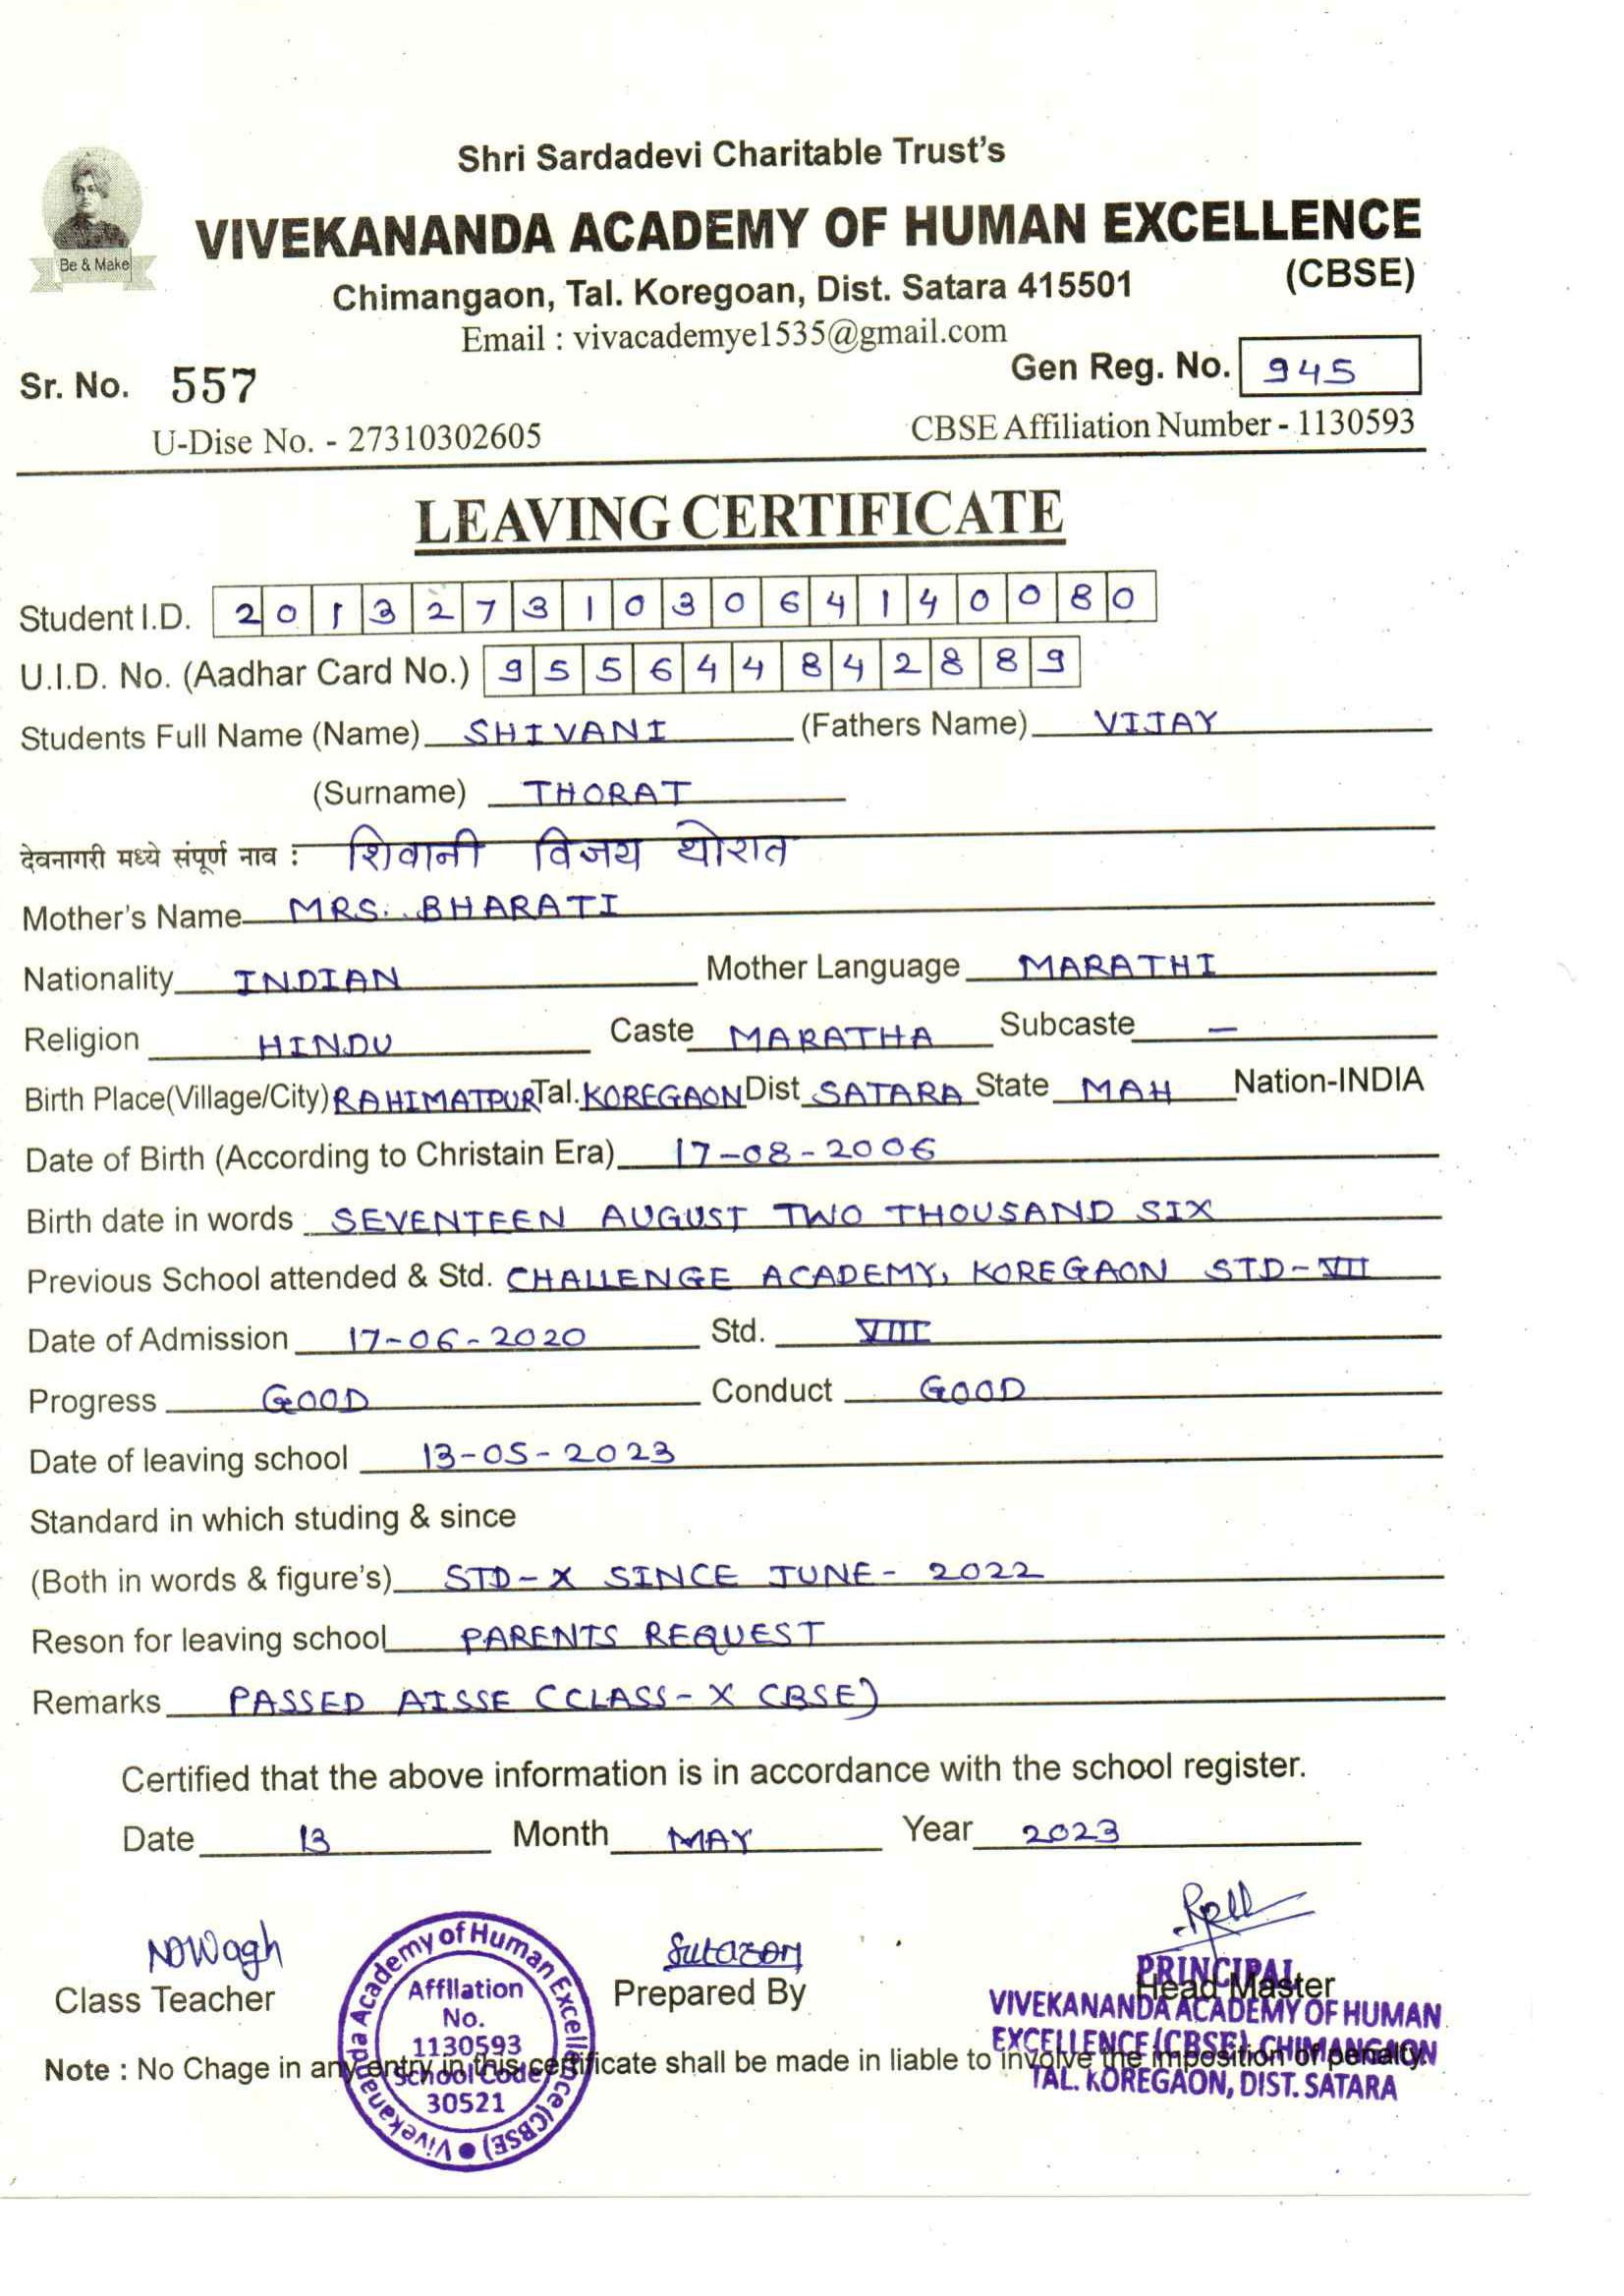 Shri Sardadevi Charitable Trust's
VIVEKANANDA ACADEMY OF HUMAN EXCELLENCE
(CBSE)
Chimangaon, Tal. Koregoan, Dist. Satara 415501
Be & Make
Email : vivacademye1535@gmail.com
Sr. No. 557 Gen Reg. No. 945
U-Dise No. - 27310302605 CBSE Affiliation Number - 1130593
LEAVING CERTIFICATE
Student I.D. 2013273103064140080
U.I.D. No. (Aadhar Card No.) 955644842889
Students Full Name (Name) SHIVANI (Fathers Name) VIJAY
(Surname) THORAT
देवनागरी मध्ये संपूर्ण नाव : शिवानी विजय थोरात
Mother's Name MRS. BHARATI
Nationality INDIAN Mother Language MARATHI
Religion HINDU Caste MARATHA Subcaste —
Birth Place(Village/City) RAHIMATPUR Tal. KOREGAON Dist SATARA State MAH Nation-INDIA
Date of Birth (According to Christain Era) 17-08-2006
Birth date in words SEVENTEEN AUGUST TWO THOUSAND SIX
Previous School attended & Std. CHALLENGE ACADEMY, KOREGAON STD-VII
Date of Admission 17-06-2020 Std. VIII
Progress GOOD Conduct GOOD
Date of leaving school 13-05-2023
Standard in which studing & since
(Both in words & figure's) STD-X SINCE JUNE-2022
Reson for leaving school PARENTS REQUEST
Remarks PASSED AISSE (CLASS-X CBSE)
Certified that the above information is in accordance with the school register.
Date 13 Month MAY Year 2023
Class Teacher Prepared By Head Master
PRINCIPAL
VIVEKANANDA ACADEMY OF HUMAN
EXCELLENCE (CBSE), CHIMANGAON
TAL. KOREGAON, DIST. SATARA
Vivekananda Academy of Human Excellence (CBSE)
Affilation
No.
1130593
School Code
30521
Note : No Chage in any entry in this certificate shall be made in liable to involve the imposition of penalty.